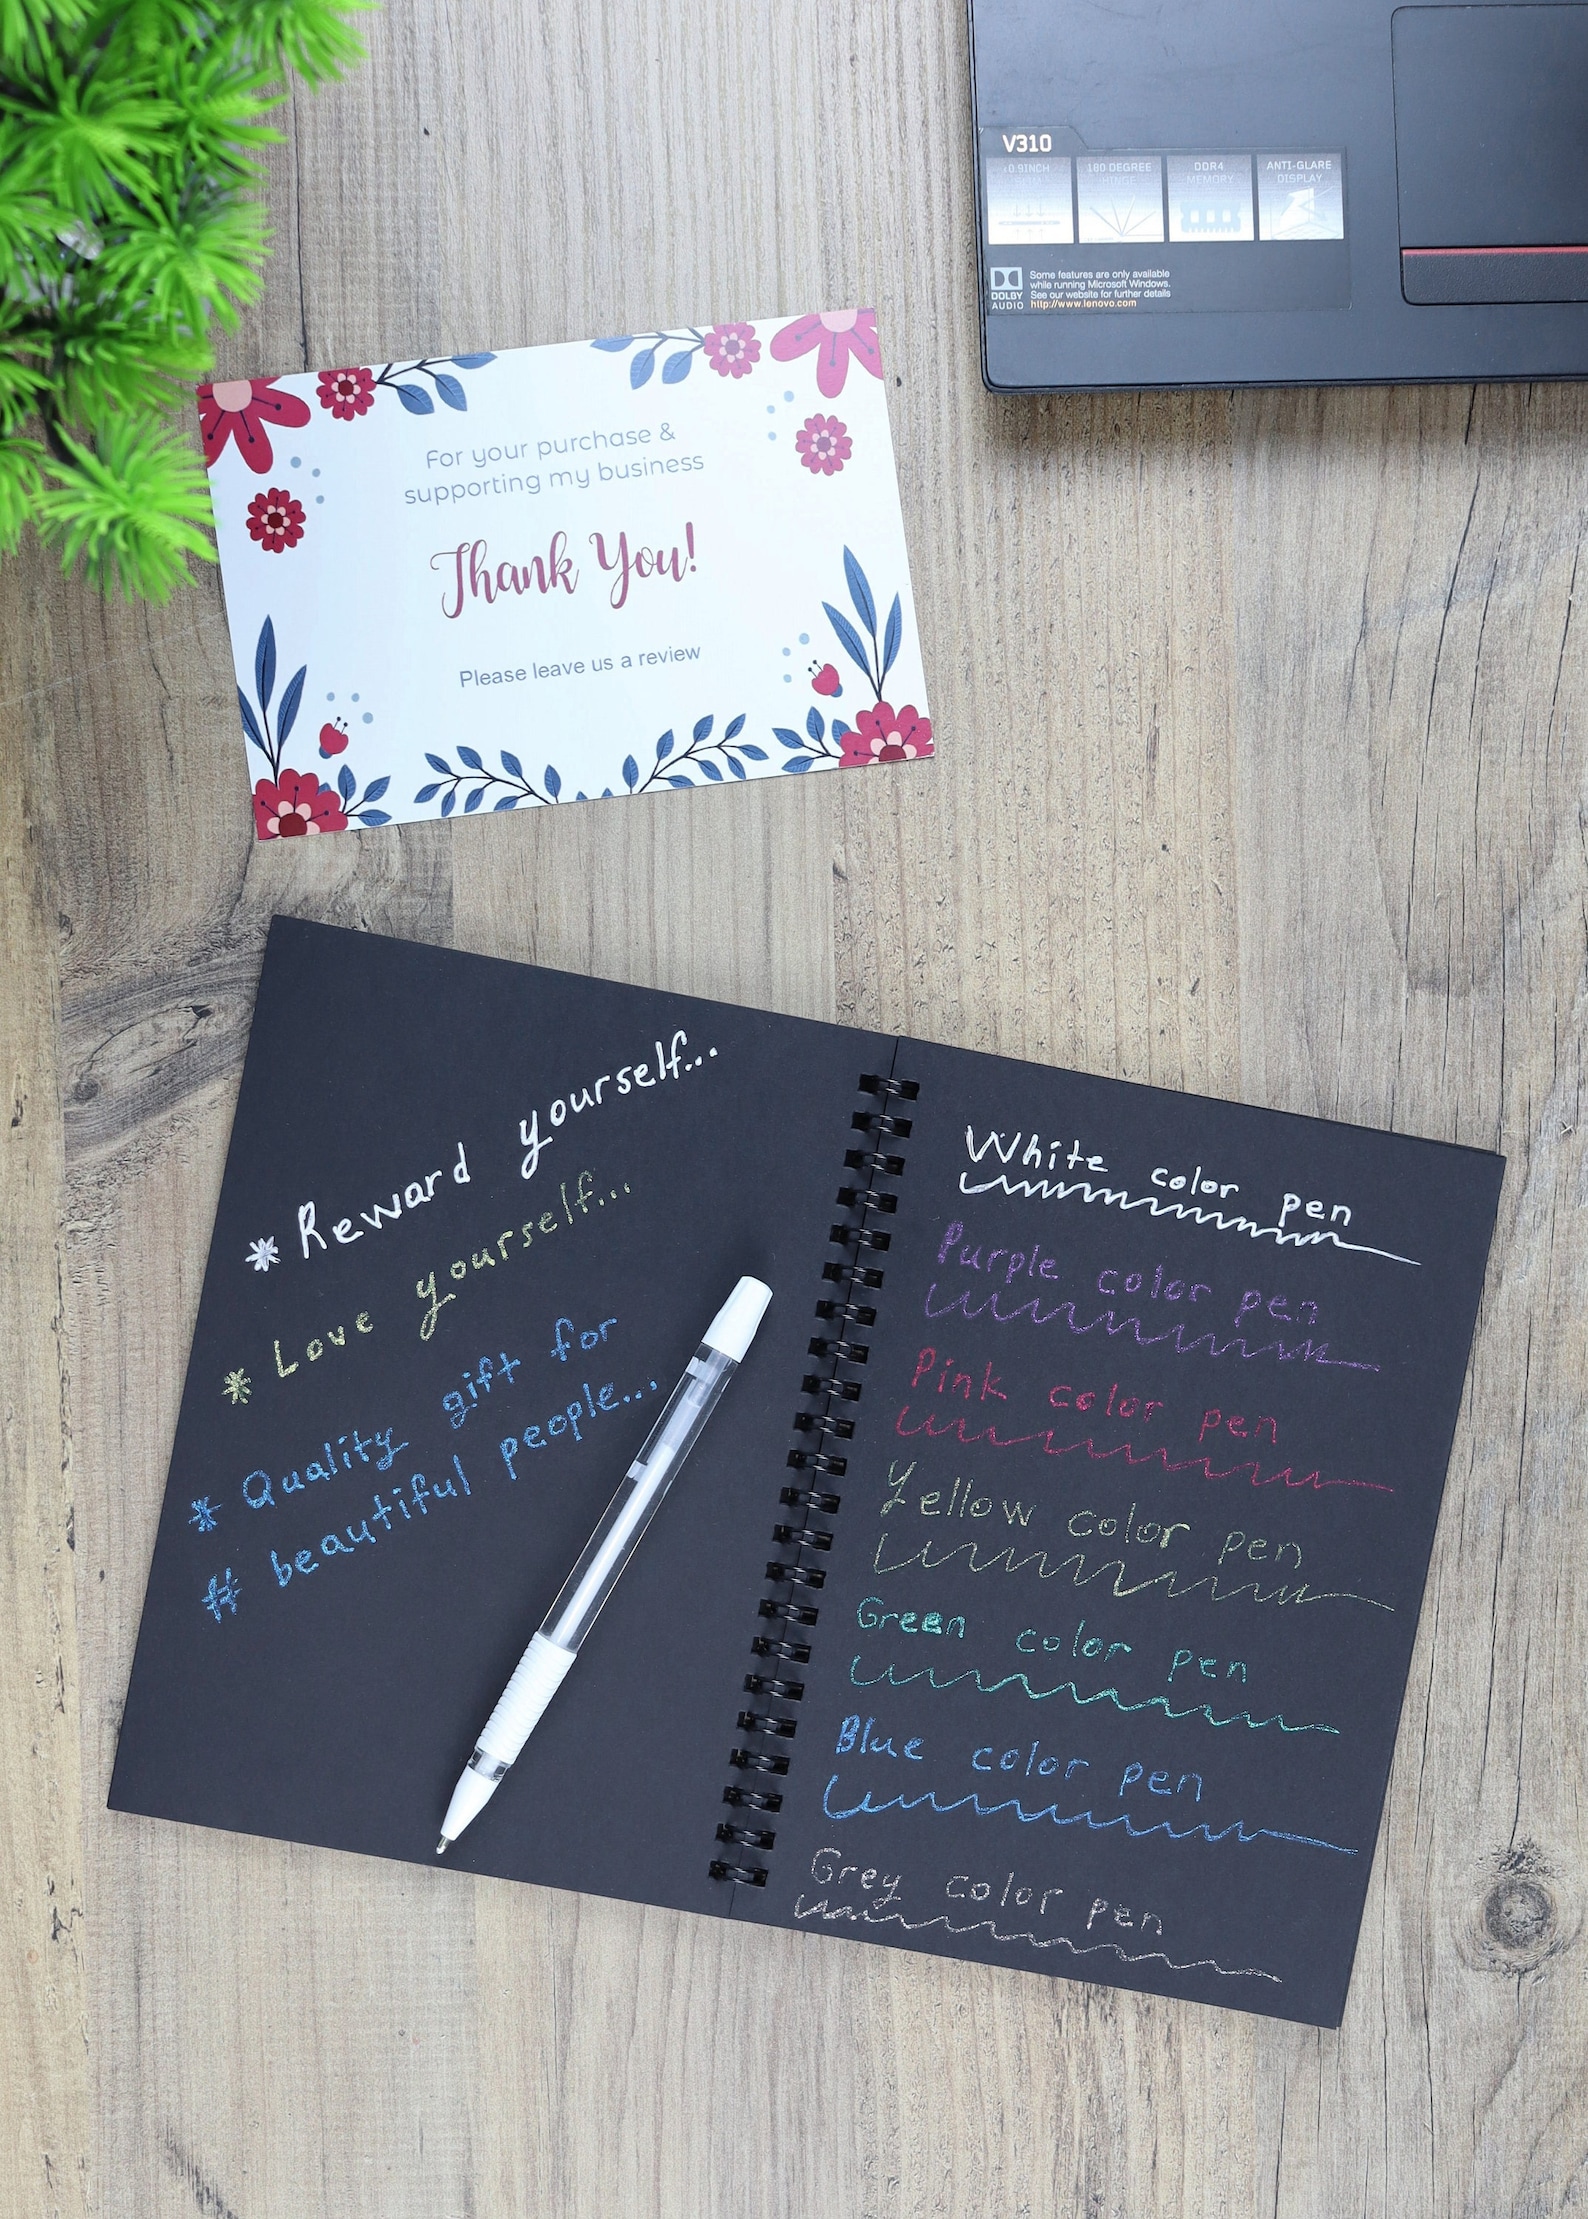 V310
10.9INCH
180 DEGREE
HINGE
DDR4
MEMORY
ANTI-GLARE
DISPLAY
DOLBY
AUDIO
Some features are only available
while running Microsoft Windows.
See our website for further details
http://www.lenovo.com
For your purchase &
supporting my business
Thank You!
Please leave us a review
* Reward yourself...
* Love yourself...
* Quality gift for
# beautiful people...
White color pen
Purple color pen
Pink color pen
Yellow color pen
Green color pen
Blue color pen
Grey color pen